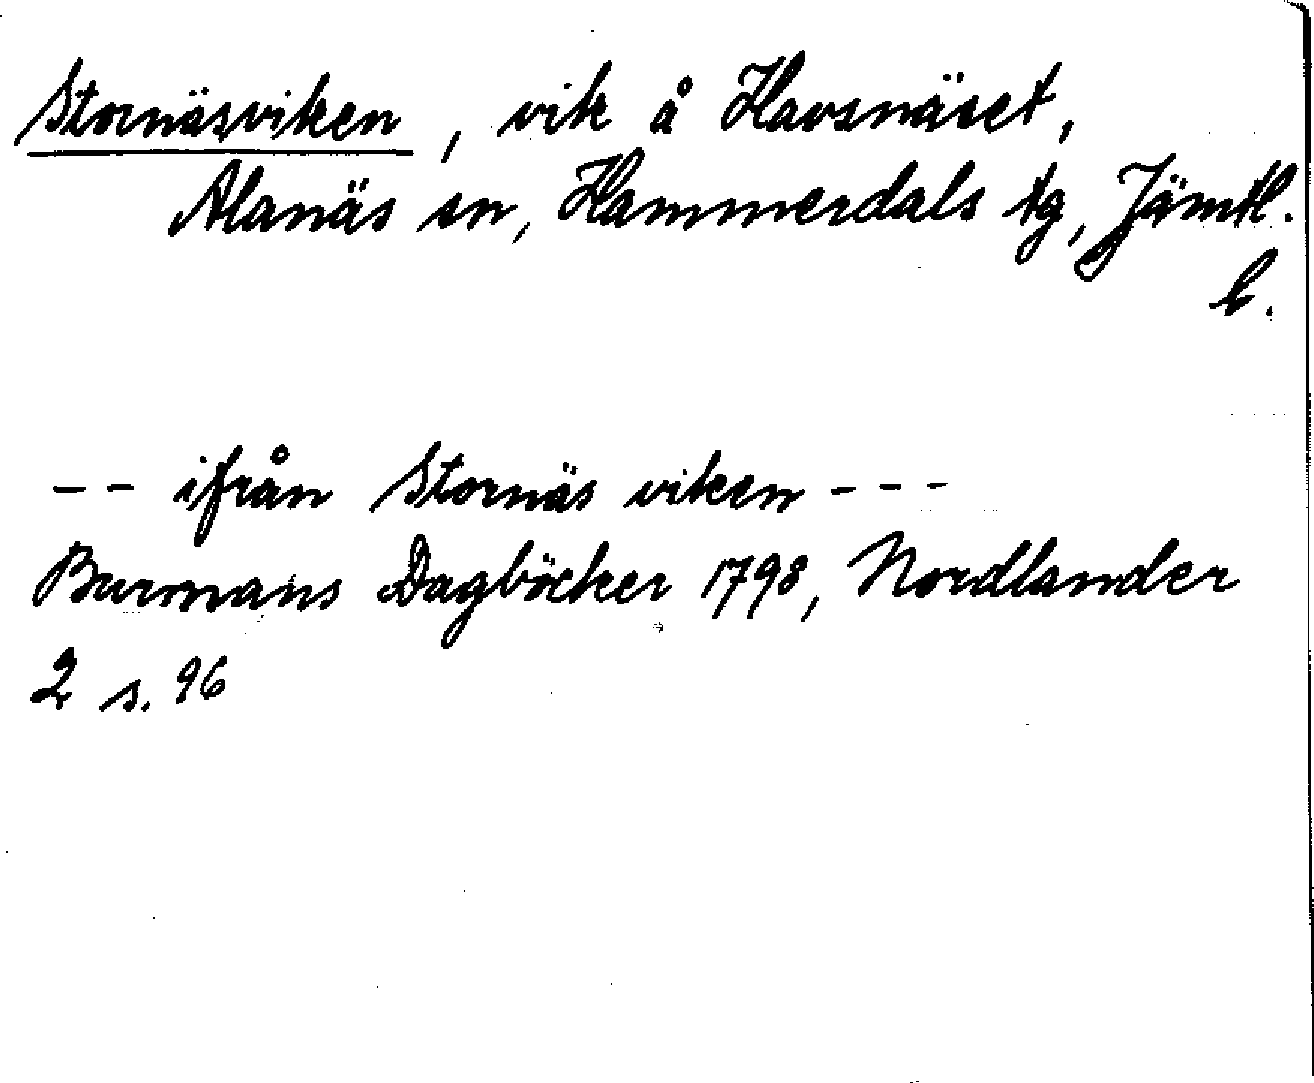 Stornäsviken, vik å Havsnäset,
Alanäs sn, Hammerdals tg, Jämtl.
l.
-- ifrån Stornäs viken ---
Burmans Dagböcker 1798, Nordlander
2 s. 96